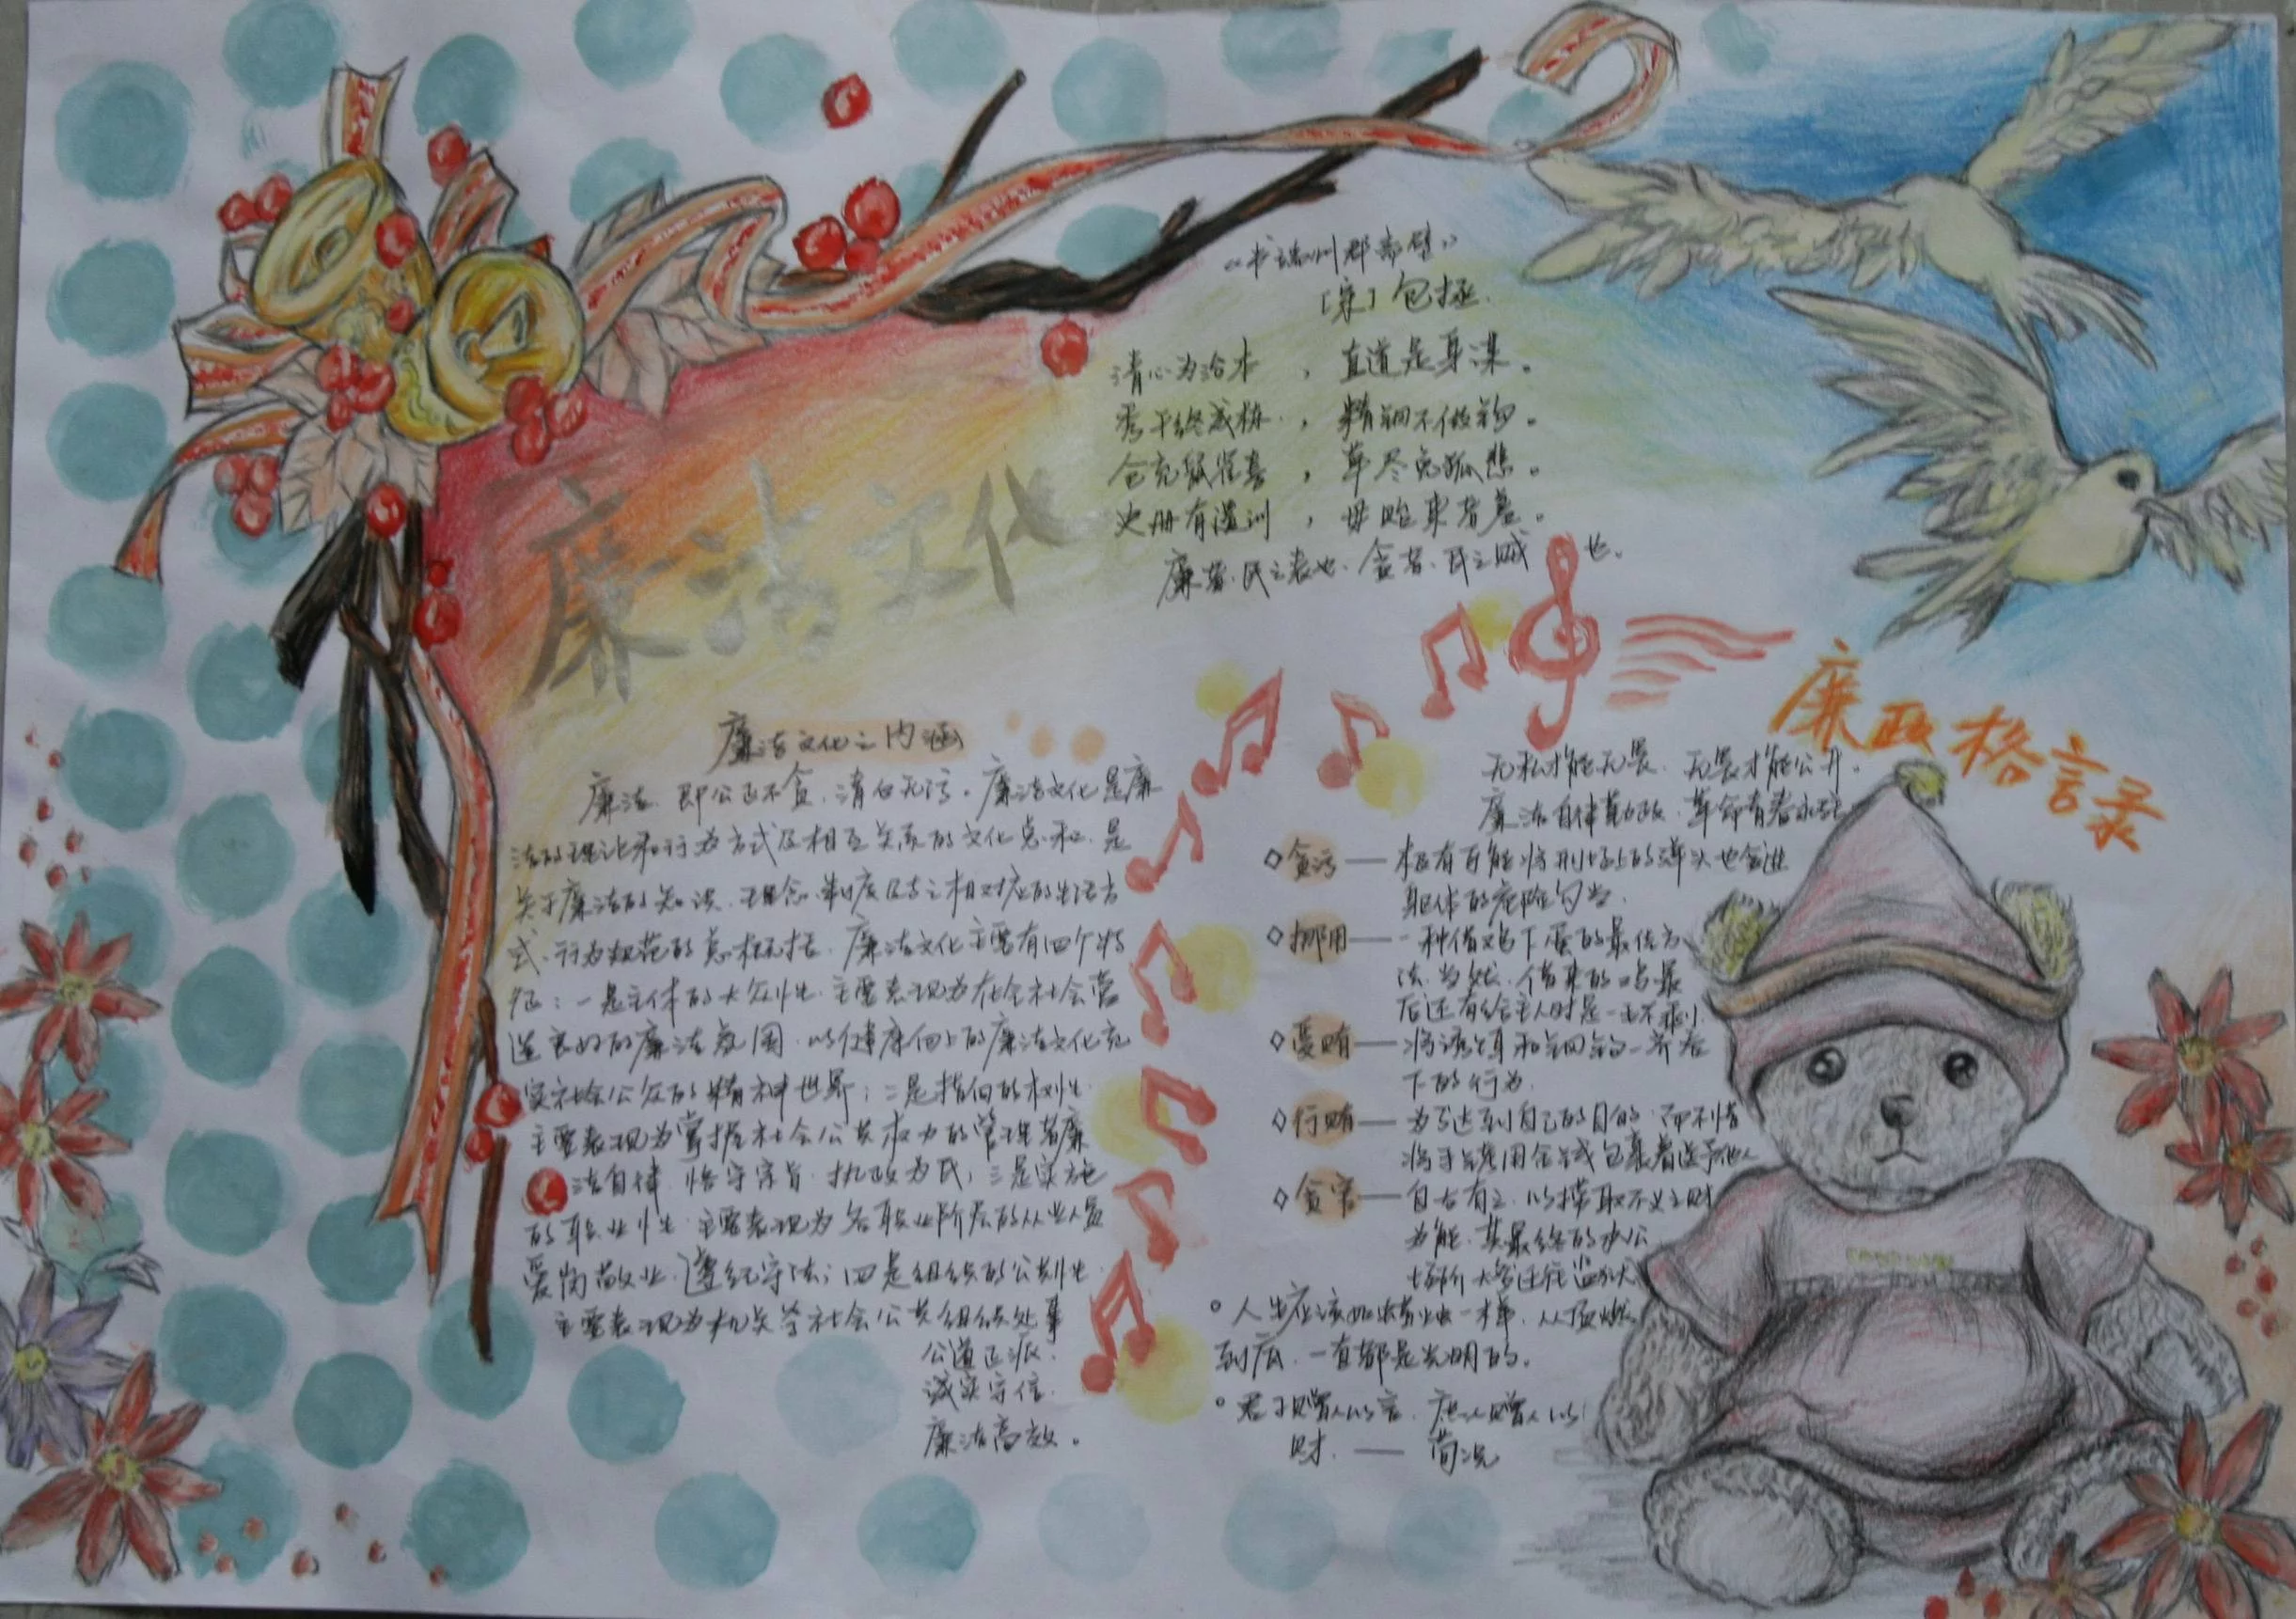 廉洁文化
《书端州郡斋壁》
[宋] 包拯
清心为治本，直道是身谋。
秀干终成栋，精钢不做钩。
仓充鼠雀喜，草尽兔狐悲。
史册有遗训，毋贻来者羞。
廉者、民之表也、贪者、民之贼也、
廉洁文化之内涵
廉洁、即公正不贪、清白无污。廉洁文化是廉
洁的理论和行为方式及相互关系的文化总和、是
关于廉洁的知识、理念、制度及与之相对应的生活方
式、行为规范的总概括、廉洁文化主要有四个特
征：一是主体的大众性、主要表现为在全社会营
造良好的廉洁氛围、以健康向上的廉洁文化充
实社会公众的精神世界；二是指向的权性、
主要表现为掌握社会公共权力的管理者廉
洁自律、恪守宗旨、执政为民；三是实施
的职业性、主要表现为各职业阶层的从业人员
爱岗敬业、遵纪守法；四是组织的公共性、
主要表现为机关等社会公共组织处事
公道正派、
诚实守信、
廉洁高效。
廉政格言录
无私才能无畏、无畏才能公开。
廉洁自律勤政、革命青春永驻
◇贪污——极有可能将刑场上的弹头也会进
躯体的危险勾当、
◇挪用——一种借鸡下蛋的最佳方
法、当然、借来的鸡最
后还有给主人时是一毛不剩、
◇受贿——将诱饵和钢钩一齐吞
下的行为、
◇行贿——为了达到自己的目的、而不惜
将手铐用金钱包裹着送予他人
◇贪官——自古有之、以搏取不义之财
为能、其最终的办公
场所大多还在监狱、
。人生应该如蜡烛一样、从顶燃
到底、一直都是光明的。
。君子赠人以言、庶人赠人以
财、—— 荀况